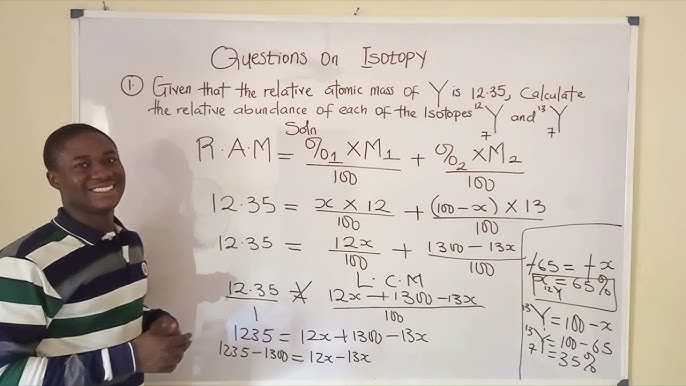 Questions on Isotopy
1. Given that the relative atomic mass of Y is 12.35, Calculate
the relative abundance of each of the Isotopes ¹²₇Y and ¹³₇Y
Soln
R.A.M = %₁ X M₁/100 + %₂ X M₂/100
12.35 = x X 12/100 + (100-x) X 13/100
12.35 = 12x/100 + 1300-13x/100
L.C.M
12.35/1 = 12x+1300-13x/100
1235 = 12x+1300-13x
1235-1300 = 12x-13x
-65 = -x
x₁₂Y = 65%
¹³Y = 100-x
¹³₇Y = 100-65
= 35%